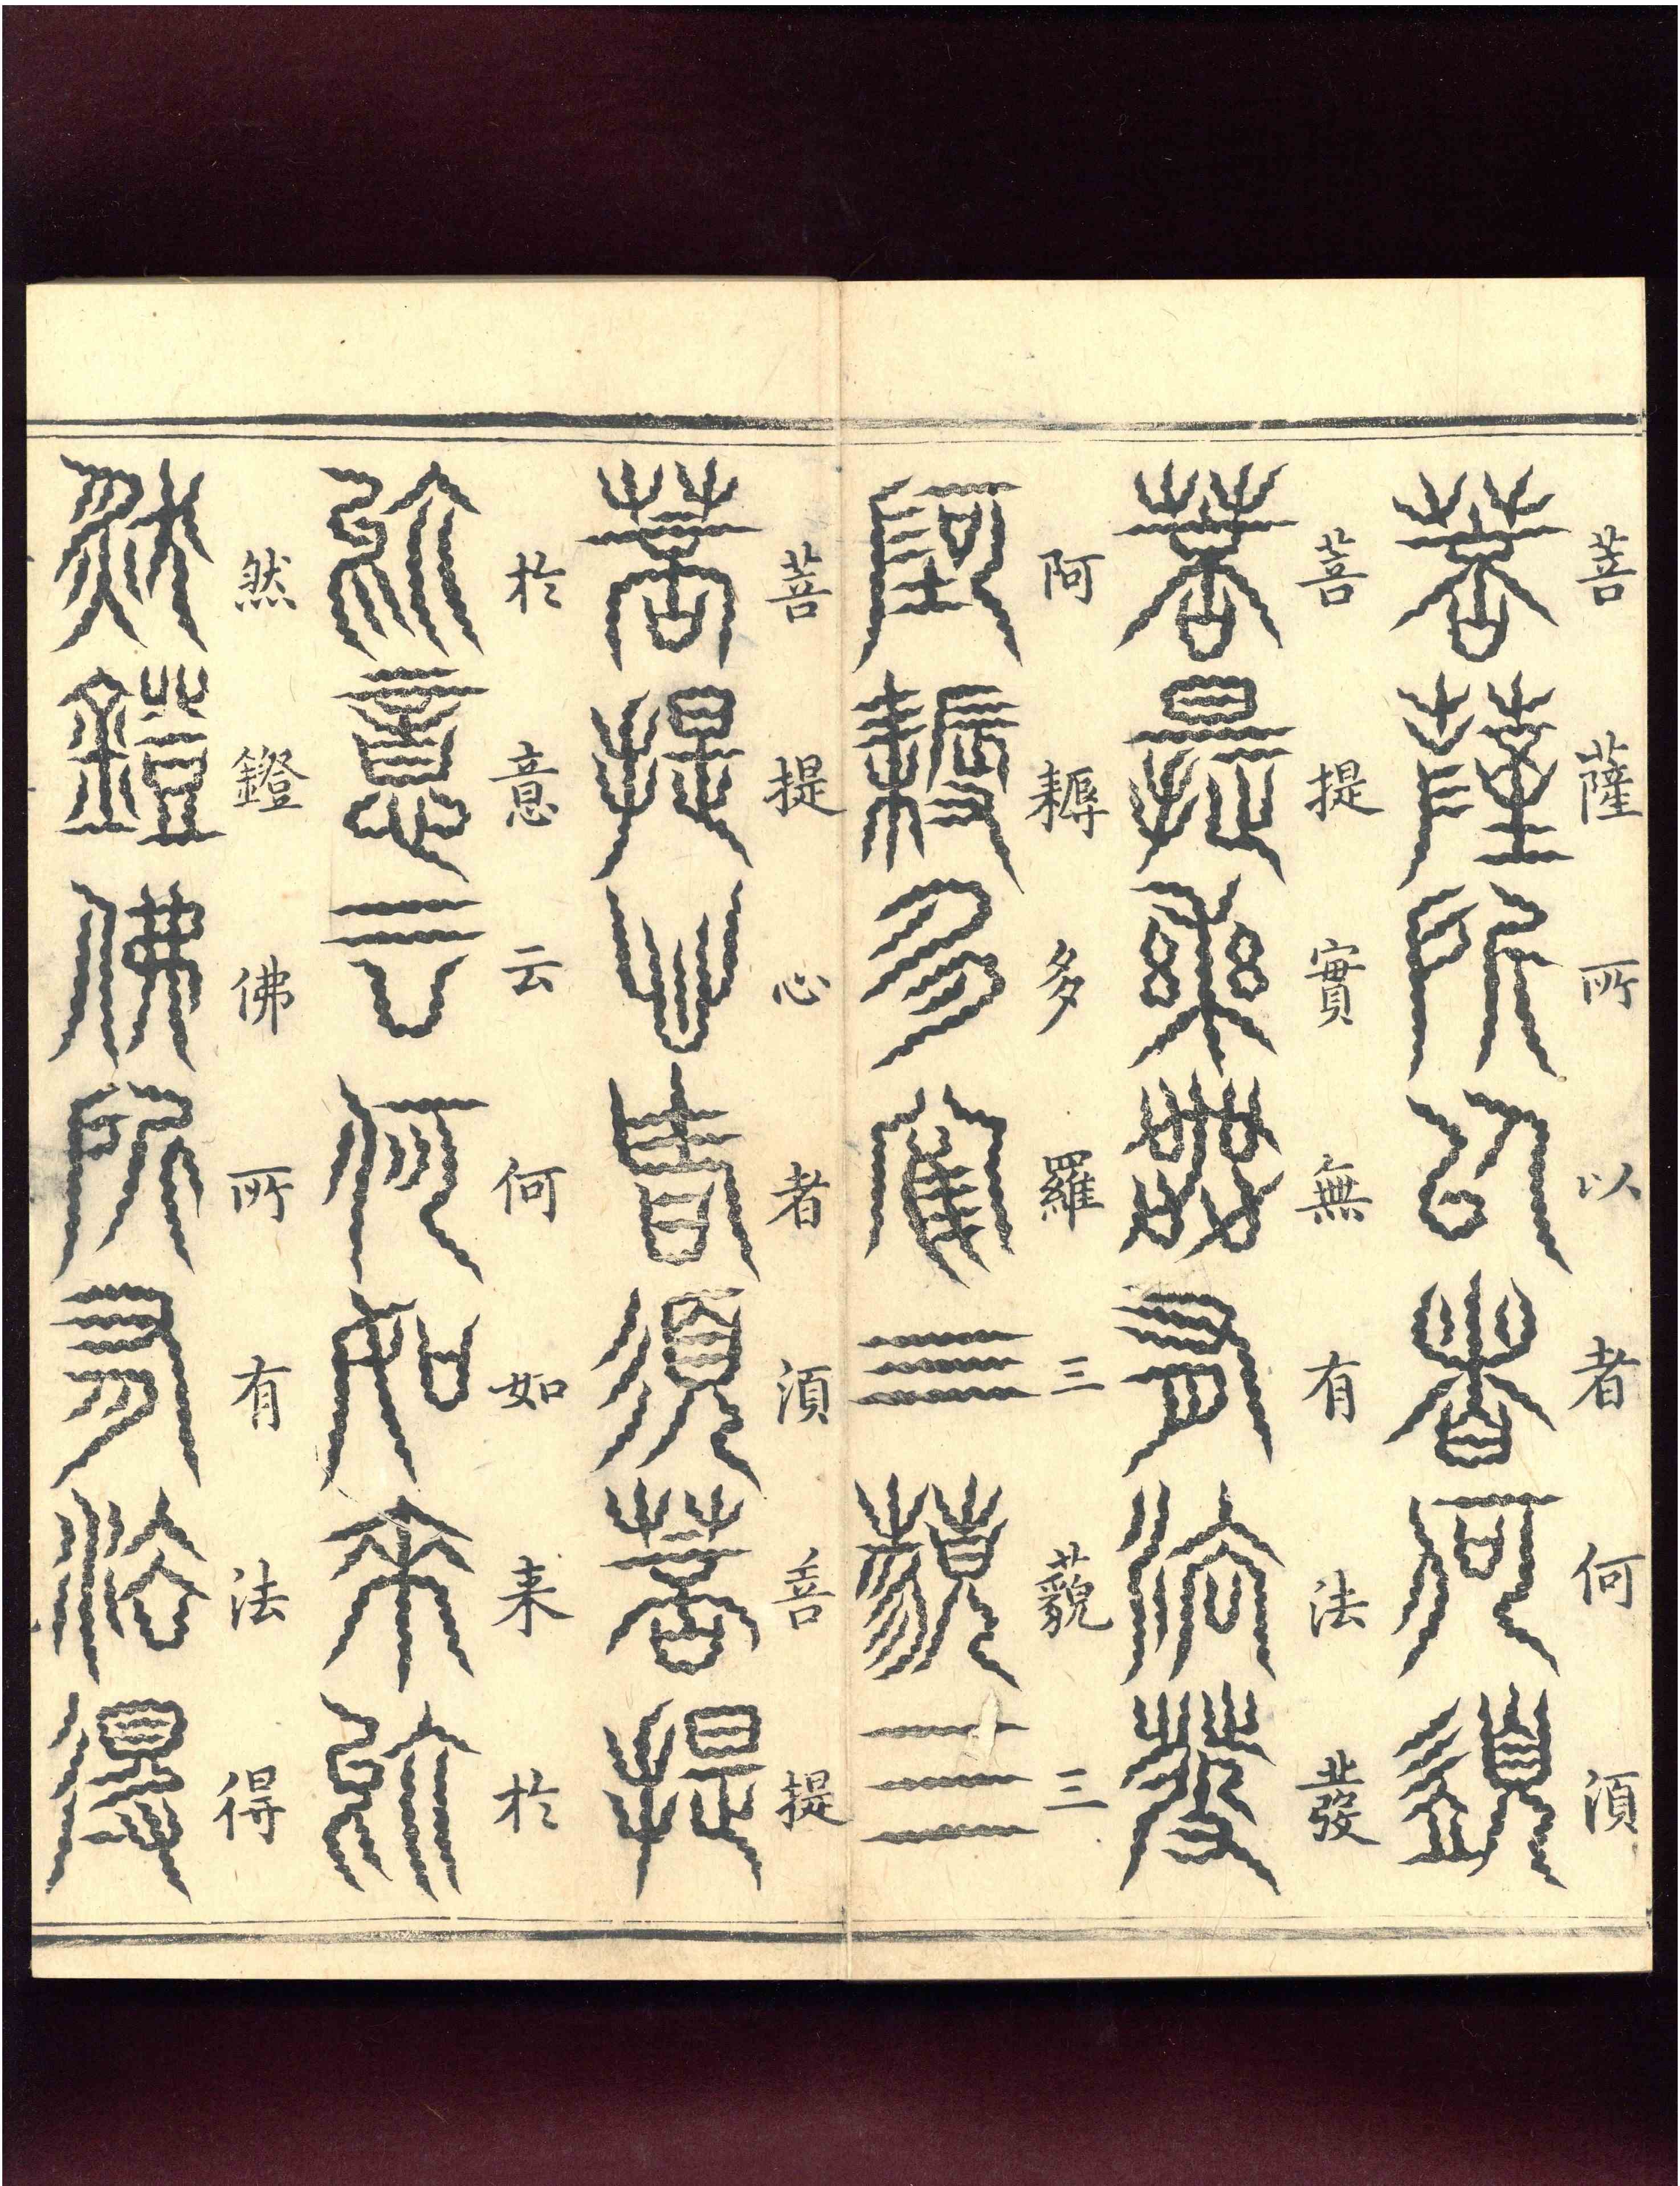 菩薩所以者何湏
菩提實無有法發
阿耨多羅三藐三
菩提心者湏菩提
於意云何如来於
然鐙佛所有法得